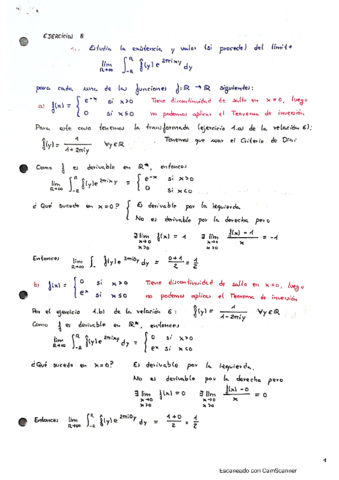 EJERCICIO 8
1.- Estudia la existencia y valor (si procede) del límite
lim_{R→∞} ∫_{-R}^{R} f̂(y) e^{2πixy} dy
para cada una de las funciones f: ℝ → ℝ siguientes:
a) f(x) = { e^{-x} si x>0 Tiene discontinuidad de salto en x=0, luego
0 si x≤0 no podemos aplicar el Teorema de inversión.
Para este caso tenemos la transformada (ejercicio 1.a) de la relación 6):
f̂(y) = 1/(1+2πiy) ∀y∈ℝ Tenemos que usar el Criterio de Dini
Como f es derivable en ℝ*, entonces
lim_{R→∞} ∫_{-R}^{R} f̂(y) e^{2πixy} dy = { e^{-x} si x>0
0 si x<0
¿Qué sucede en x=0? { Es derivable por la izquierda
No es derivable por la derecha pero
∃ lim_{x→0, x>0} f(x) = 1 ∃ lim_{x→0, x>0} (f(x)-1)/x = -1
Entonces lim_{R→∞} ∫ f̂(y) e^{2πi0y} dy = (0+1)/2 = 1/2
b) f(x) = { 0 si x>0 Tiene discontinuidad de salto en x=0, luego
e^x si x≤0 no podemos aplicar el Teorema de inversión
En el ejercicio 1.b) de la relación 6: f̂(y) = 1/(1-2πiy) ∀y∈ℝ
Como f es derivable en ℝ*, entonces
lim_{R→∞} ∫_{-R}^{R} f̂(y) e^{2πixy} dy = { 0 si x>0
e^x si x<0
¿Qué sucede en x=0? Es derivable por la izquierda.
No es derivable por la derecha pero
∃ lim_{x→0, x>0} f(x) = 0 ∃ lim_{x→0, x>0} (f(x)-0)/x = 0
Entonces lim_{R→∞} ∫_{-R}^{R} f̂(y) e^{2πi0y} dy = (1+0)/2 = 1/2
1
Escaneado con CamScanner